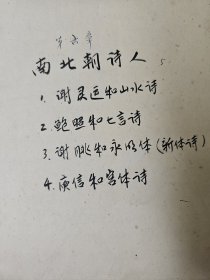 第六章
南北朝诗人
1. 谢灵运和山水诗
2. 鲍照和七言诗
3. 谢朓和永明体(新体诗)
4. 庾信和宫体诗